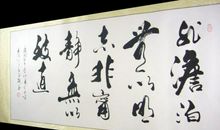 非澹泊
無以明
志非寧
靜無以
致遠